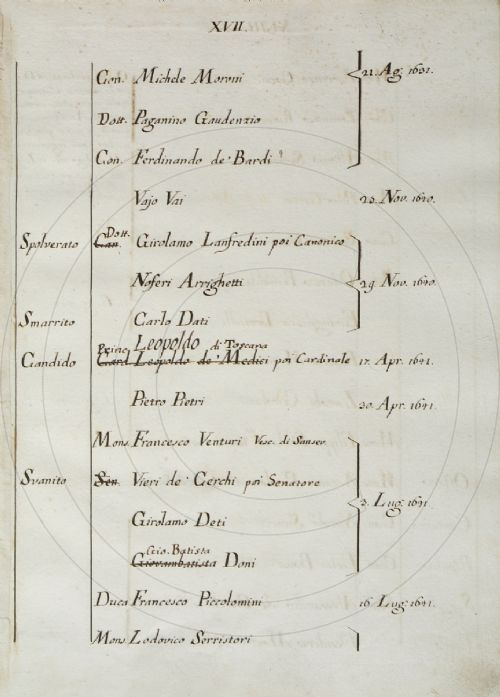 XVII.
Con. Michele Moroni 21. Ag. 1631.
Dott. Paganino Gaudenzio
Con. Ferdinando de' Bardi
Vajo Vai 25. Nov. 1640.
Dott.
Spolverato Can. Girolamo Lanfredini poi Canonico
Noferi Arrighetti 29. Nov. 1640.
Smarrito Carlo Dati
Princ. Leopoldo di Toscana
Candido Card Leopoldo de' Medici poi Cardinale 17. Apr. 1641.
Pietro Pietri 30. Apr. 1641.
Mons. Francesco Venturi Vesc. di Sansev.
Svanito Sen. Vieri de' Cerchi poi Senatore
3. Lug. 1641
Girolamo Deti
Gio. Batista
Giovambatista Doni
Duca Francesco Piccolomini 16. Lug. 1641.
Mons. Lodovico Serristori